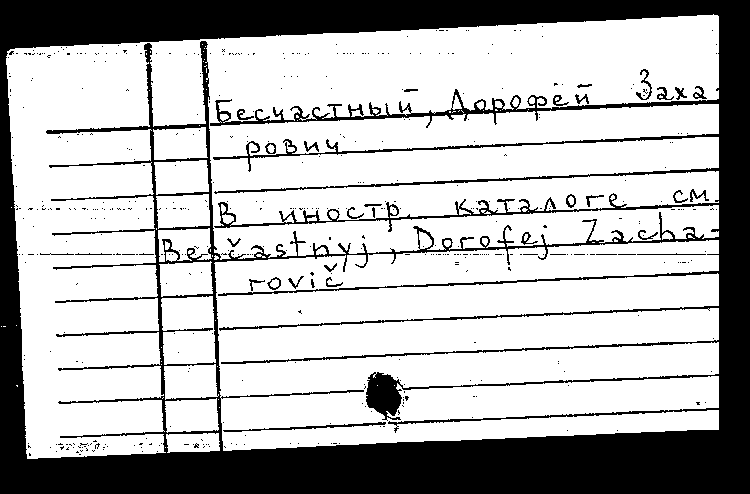 Бесчастный, Дорофей Заха-
рович
В иностр. каталоге см.
Besčastnyj, Dorofej Zacha-
rovič